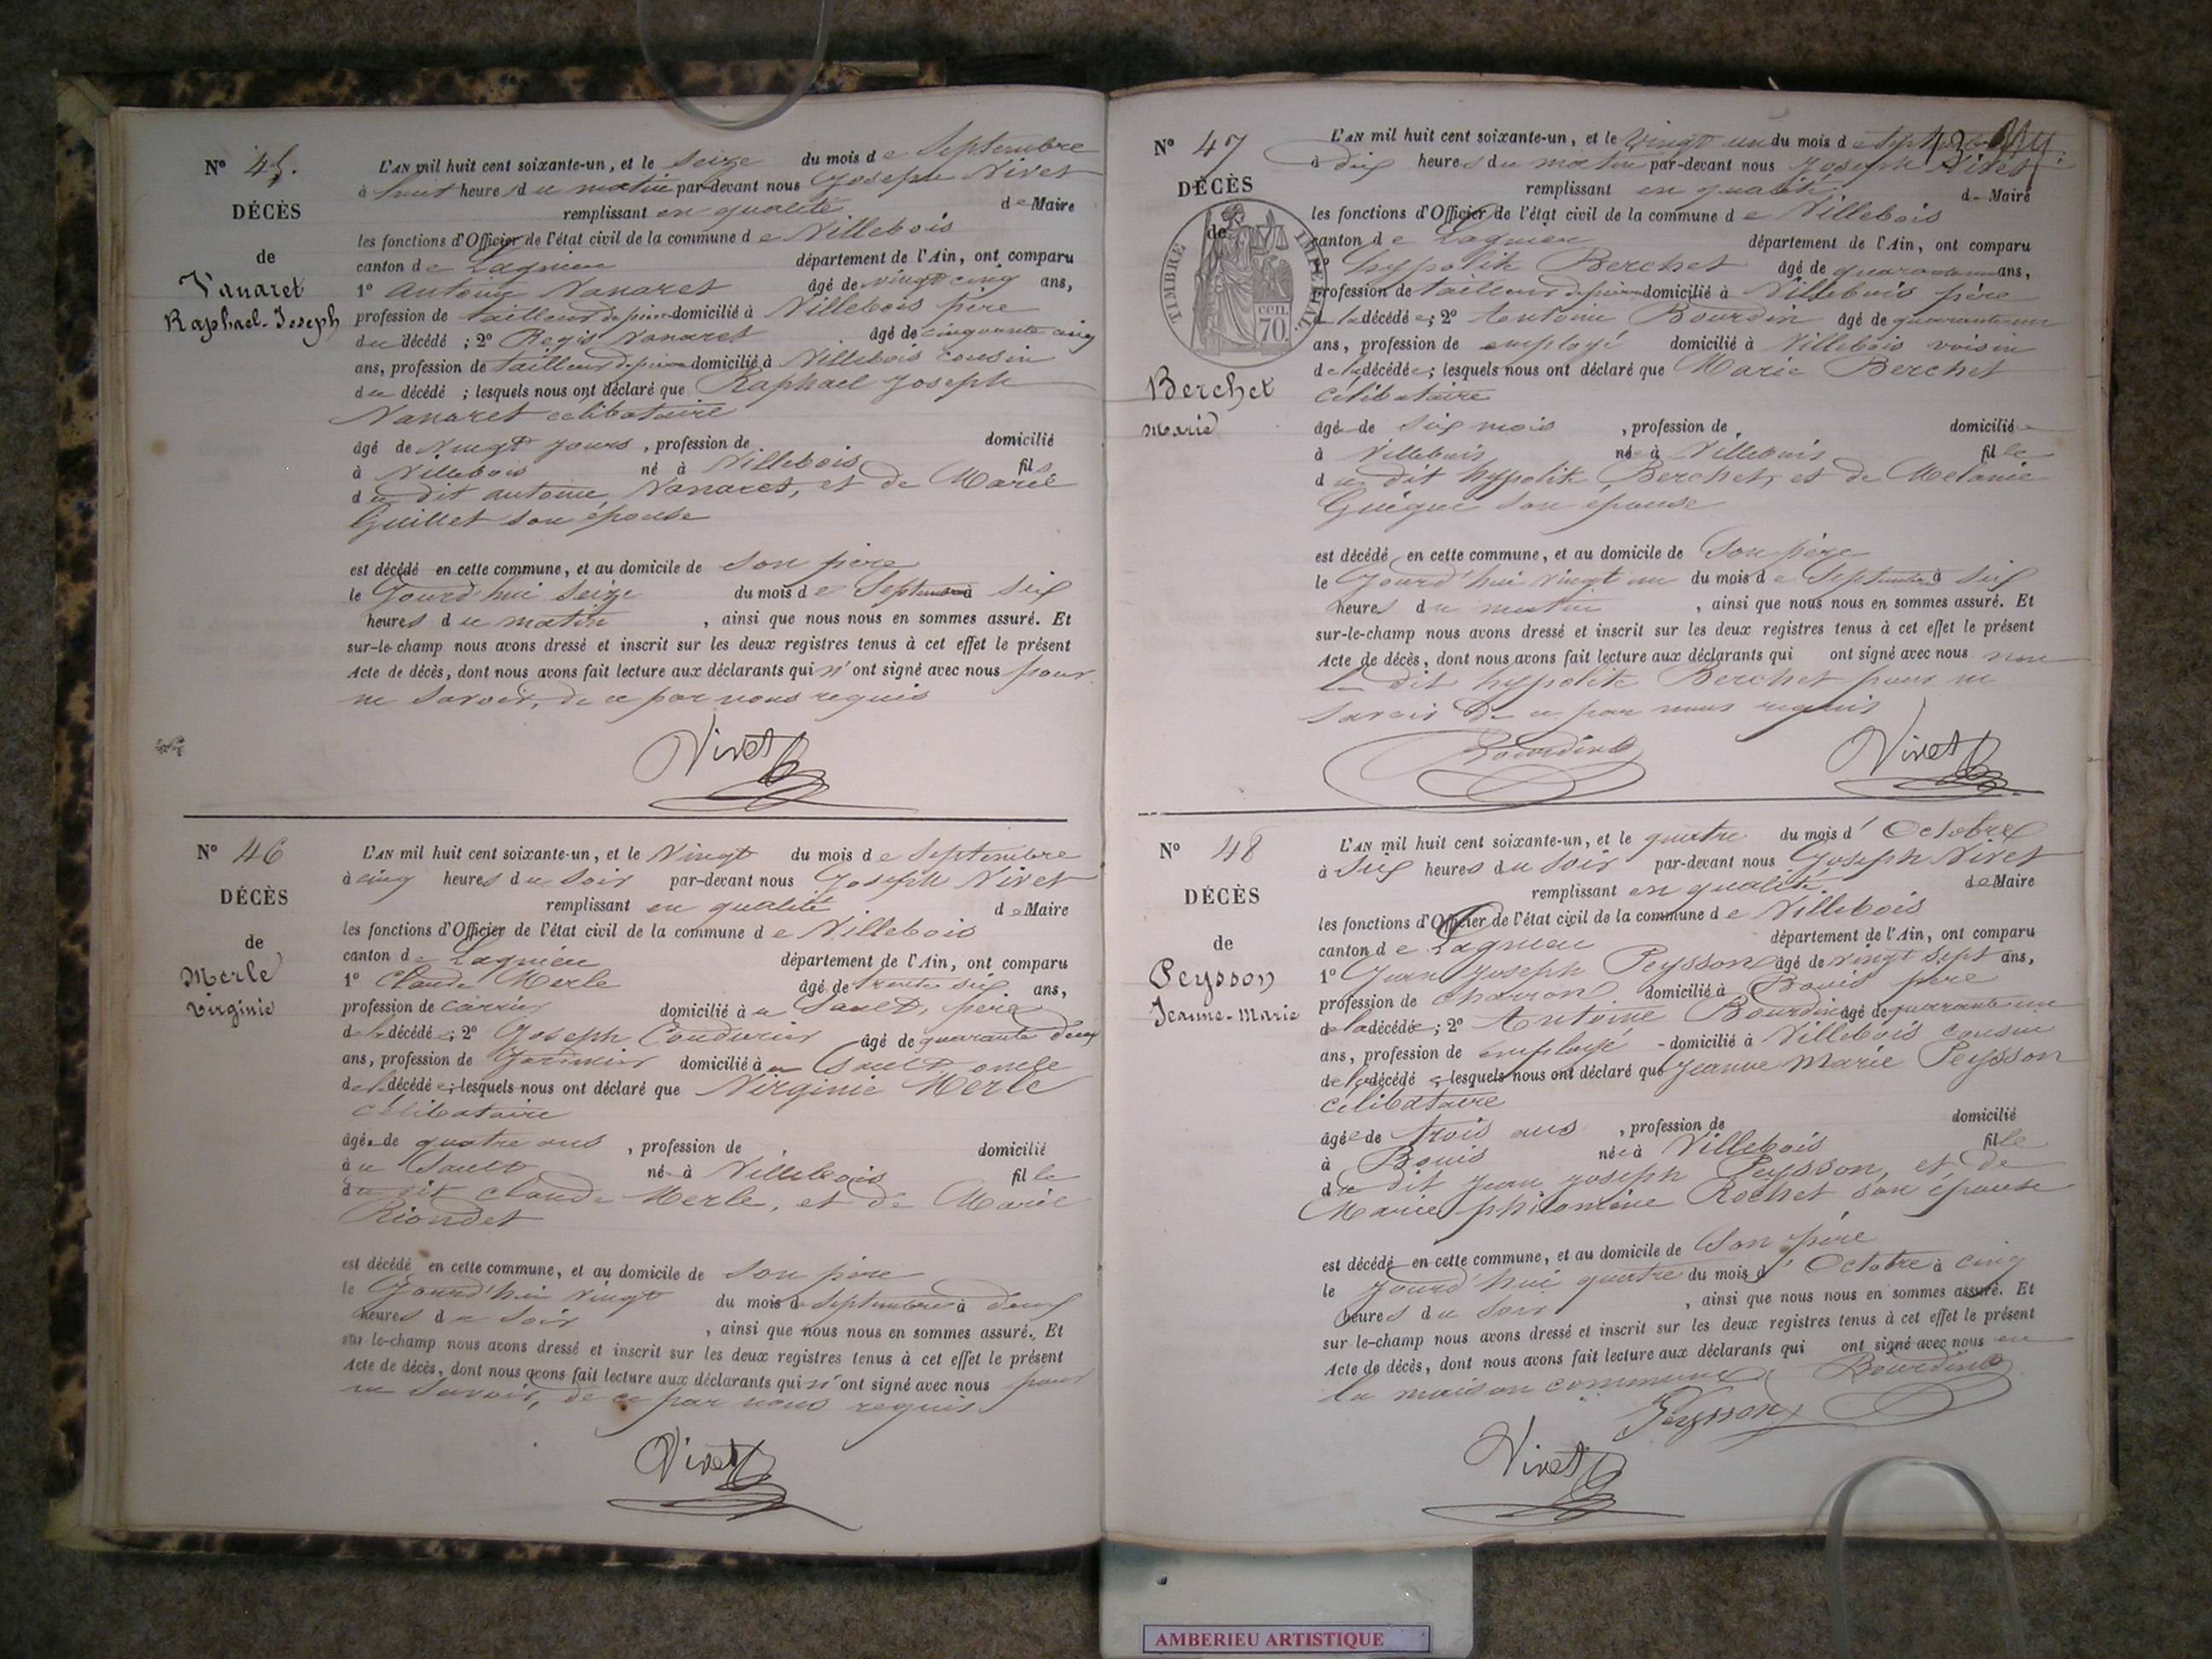 N° 45.
DÉCÈS
de
Vanaret
Raphael-Joseph
L'AN mil huit cent soixante-un, et le Seize du mois de Septembre
à huit heures du matin par-devant nous Joseph Vivet
remplissant en qualité de Maire
les fonctions d'Officier de l'état civil de la commune de Villebois
canton de Lagnieu département de l'Ain, ont comparu
1° antoine Vanaret âgé de vingt cinq ans,
profession de tailleur de pierre domicilié à Villebois père
du décédé ; 2° Regis Vanaret âgé de cinquante cinq
ans, profession de tailleur de pierre domicilié à Villebois cousin
du décédé ; lesquels nous ont déclaré que Raphael Joseph
Vanaret célibataire
âgé de vingt jours , profession de domicilié
à Villebois né à Villebois fils
du dit antoine Vanaret, et de Marie
Guillet son épouse
est décédé en cette commune, et au domicile de son père
le Jourd'hui Seize du mois de Septembre à six
heures du matin , ainsi que nous nous en sommes assuré. Et
sur-le-champ nous avons dressé et inscrit sur les deux registres tenus à cet effet le présent
Acte de décès, dont nous avons fait lecture aux déclarants qui n'ont signé avec nous pour
ne savoir, de ce par nous requis
Vivet
N° 46
DÉCÈS
de
Merle
Virginie
L'AN mil huit cent soixante-un, et le Vingt du mois de Septembre
à cinq heures du soir par-devant nous Joseph Vivet
remplissant en qualité de Maire
les fonctions d'Officier de l'état civil de la commune de Villebois
canton de Lagnieu département de l'Ain, ont comparu
1° Claude Merle âgé de trente six ans,
profession de carrier domicilié au Sault, père
de la décédée ; 2° Joseph Coudurier âgé de quarante deux
ans, profession de domicilié au Sault oncle
de la décédée ; lesquels nous ont déclaré que Virginie Merle
célibataire
âgée de quatre ans , profession de domicilié
au Sault née à Villebois fille
du dit Claude Merle, et de Marie
Riondet
est décédé en cette commune, et au domicile de son père
le Jourd'hui vingt du mois de Septembre à deux
heures du soir , ainsi que nous nous en sommes assuré. Et
sur le-champ nous avons dressé et inscrit sur les deux registres tenus à cet effet le présent
Acte de décès, dont nous avons fait lecture aux déclarants qui n'ont signé avec nous pour
ne savoir, de ce par nous requis
Vivet
N° 47
DÉCÈS
de
TIMBRE IMPÉRIAL
70 cen.
Berchet
Marie
L'AN mil huit cent soixante-un, et le Vingt un du mois de Septembre
à dix heures du matin par-devant nous Joseph Vivet
remplissant en qualité de Maire
les fonctions d'Officier de l'état civil de la commune de Villebois
canton de Lagnieu département de l'Ain, ont comparu
1° hypolite Berchet âgé de quarante un ans,
profession de tailleur de pierre domicilié à Villebois père
de la décédée ; 2° Antoine Bourdin âgé de quarante un
ans, profession de employé domicilié à Villebois voisin
de la décédée ; lesquels nous ont déclaré que Marie Berchet
célibataire
âgée de six mois , profession de domiciliée
à Villebois née à Villebois fille
du dit hypolite Berchet, et de Melanie
Guigue son épouse
est décédé en cette commune, et au domicile de Son père
le Jourd'hui vingt un du mois de Septembre à six
heures du matin , ainsi que nous nous en sommes assuré. Et
sur-le-champ nous avons dressé et inscrit sur les deux registres tenus à cet effet le présent
Acte de décès, dont nous avons fait lecture aux déclarants qui ont signé avec nous non
le dit hypolite Berchet pour ne
savoir de ce par nous requis
Bourdin Vivet
N° 48
DÉCÈS
de
Peysson
Jeanne-Marie
L'AN mil huit cent soixante-un, et le quatre du mois d'Octobre
à Six heures du soir par-devant nous Joseph Vivet
remplissant en qualité de Maire
les fonctions d'Officier de l'état civil de la commune de Villebois
canton de Lagnieu département de l'Ain, ont comparu
1° Jean Joseph Peysson âgé de vingt sept ans,
profession de charron domicilié à Bouis père
de la décédée ; 2° Antoine Bourdin âgé de quarante un
ans, profession de employé domicilié à Villebois cousin
de la décédé ; lesquels nous ont déclaré que Jeanne Marie Peysson
célibataire
âgée de trois ans , profession de domicilié
à Bouis née à Villebois fille
du dit Jean joseph Peysson, et de
Marie philomène Rochet son épouse
est décédé en cette commune, et au domicile de Son père
le Jourd'hui quatre du mois d'Octobre à cinq
heures du soir , ainsi que nous nous en sommes assuré. Et
sur le-champ nous avons dressé et inscrit sur les deux registres tenus à cet effet le présent
Acte de décès, dont nous avons fait lecture aux déclarants qui ont signé avec nous en
la maison commune Bourdin
Peysson
Vivet
AMBERIEU ARTISTIQUE